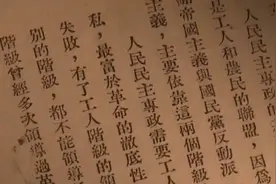 是工人和農民的聯盟，因為
帝國主義與國民黨反動派
主義，主要依靠這兩個階級
人民民主專政需要工人
私，最富於革命的徹底性
失敗，有了工人階級的領
別的階級，都不能領導
階級曾經多次領導過